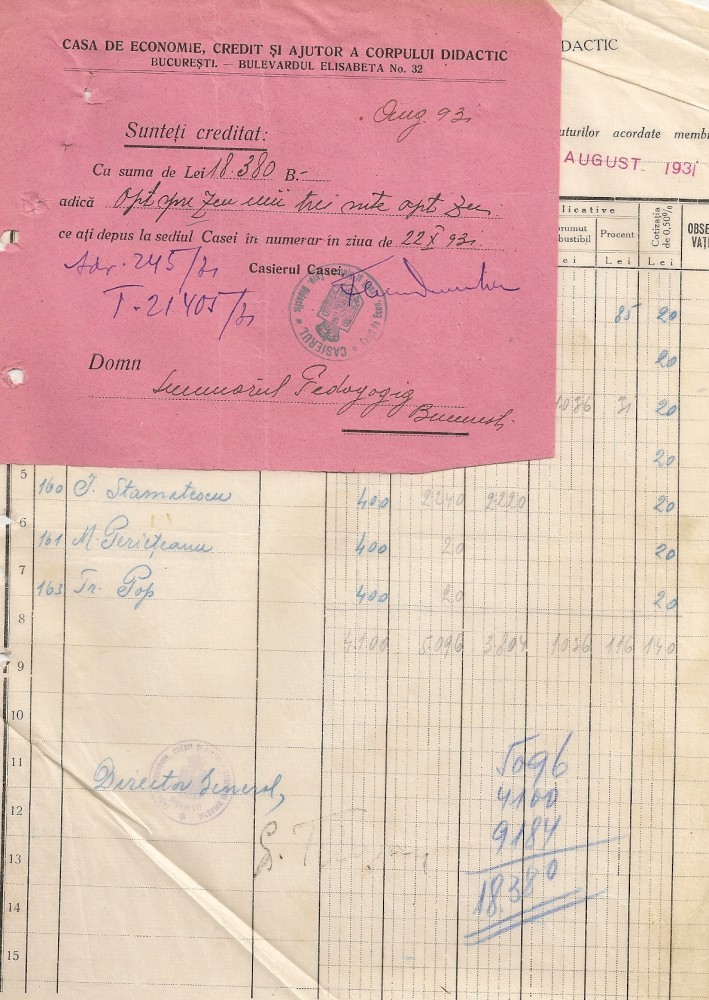 CASA DE ECONOMIE, CREDIT ȘI AJUTOR A CORPULUI DIDACTIC
BUCUREȘTI. — BULEVARDUL ELISABETA No. 32
Aug. 931
Sunteți creditat:
Cu suma de Lei 18.380 B.-
adică Optsprezeci mii trei sute opt zeci
ce ați depus la sediul Casei în numerar in ziua de 22 X 931
Adr. 245/31
Casierul Casei,
T-21405/31
CASIERUL
Domn
Seminarul Pedagogig
București
DACTIC
uturilor acordate membi
AUGUST 1931
licative
rumut
bustibil
Procent
Cotizația de 0,50%
OBSE
VAȚI
ei Lei Lei
85 20
20
1036 31 20
20
5
160 I. Stamatescu 400 2240 2220 20
6
161 M. Gericțeanu 400 20 20
7
163 Tr. Pop 400 20 20
8
4100 5.096 3.804 1036 116 140
9
10
11
Director General,
12
13
14
15
5096
4100
9184
18.380